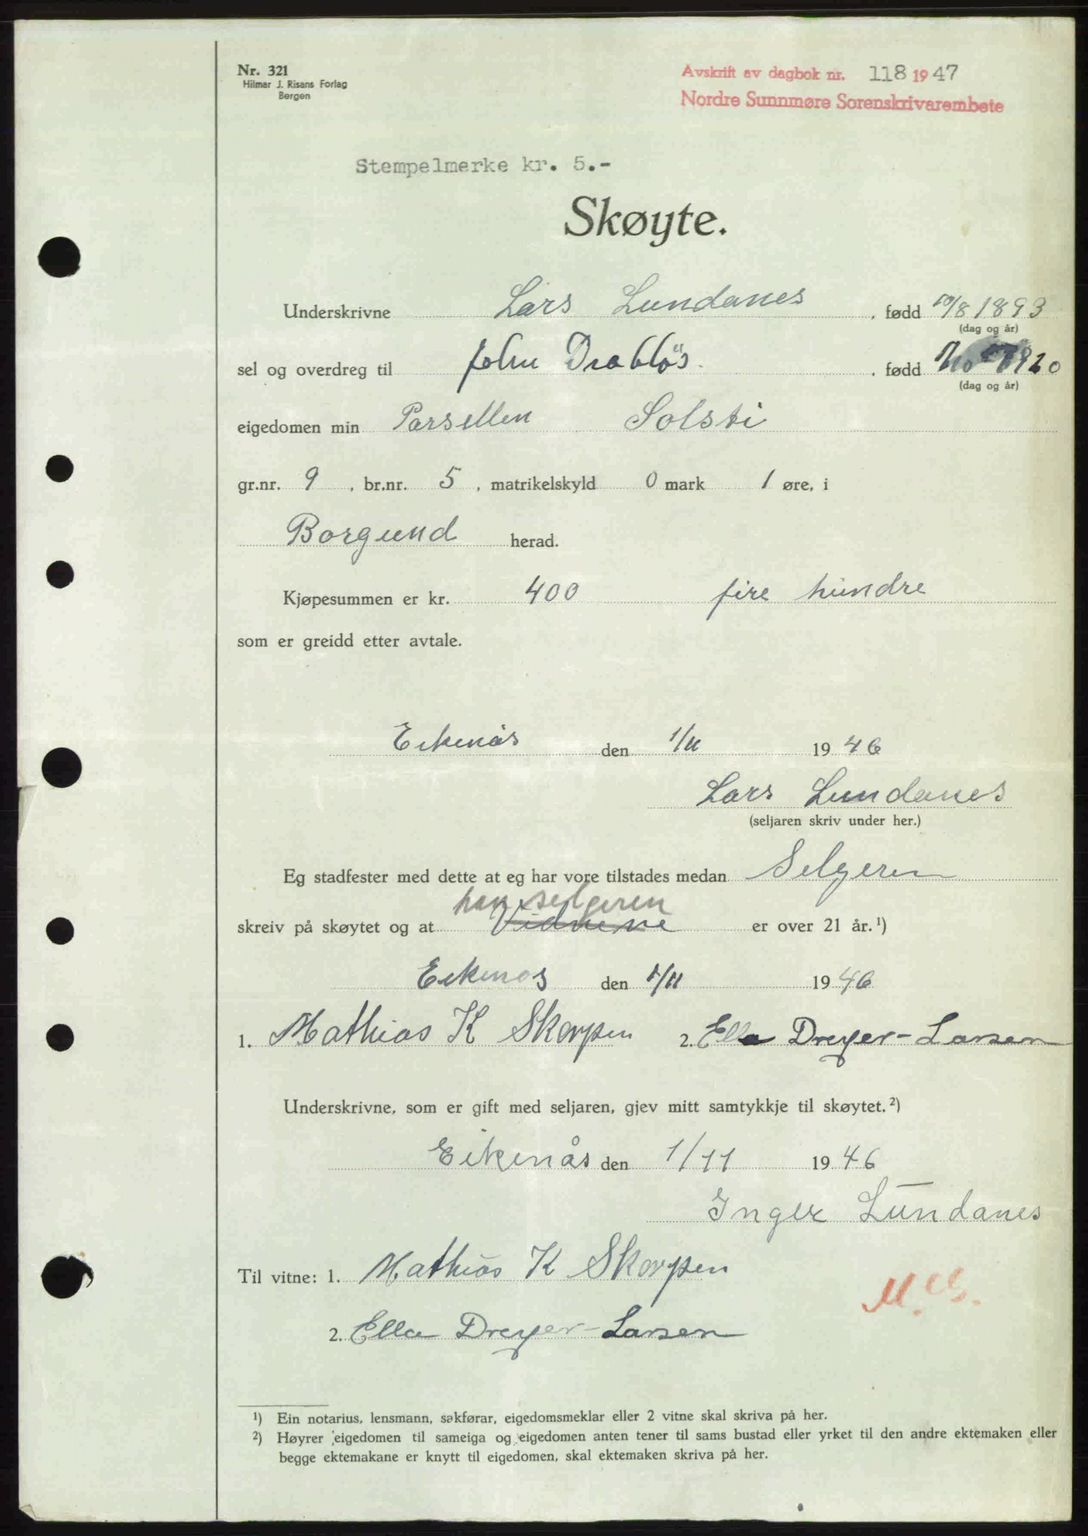 Nr. 321
Hilmar J. Risans Forlag
Bergen
Avskrift av dagbok nr. 118 1947
Nordre Sunnmøre Sorenskrivarembete
Stempelmerke kr. 5.-
Skøyte.
Underskrivne Lars Lundanes, fødd 10/8 1893
(dag og år)
sel og overdreg til John Drabløs, fødd 1920
(dag og år)
eigedomen min Parsellen Solsti
gr.nr. 9, br.nr. 5, matrikelskyld 0 mark 1 øre, i
Borgund herad.
Kjøpesummen er kr. 400 fire hundre
som er greidd etter avtale.
Eikenås den 1/11 1946
Lars Lundanes
(seljaren skriv under her.)
Eg stadfester med dette at eg har vore tilstades medan Selgeren
han selgeren
skreiv på skøytet og at Vidnene er over 21 år.¹)
Eikenos den 1/11 1946
1. Mathias K Skorpen 2. Ella Dreyer-Larsen
Underskrivne, som er gift med seljaren, gjev mitt samtykkje til skøytet.²)
Eikenås den 1/11 1946
Inger Lundanes
Til vitne: 1. Mathias K Skorpen
2. Ella Dreyer-Larsen
¹) Ein notarius, lensmann, sakførar, eigedomsmeklar eller 2 vitne skal skriva på her.
²) Høyrer eigedomen til sameiga og eigedomen anten tener til sams bustad eller yrket til den andre ektemaken eller
begge ektemakane er knytt til eigedomen, skal ektemaken skriva på her.